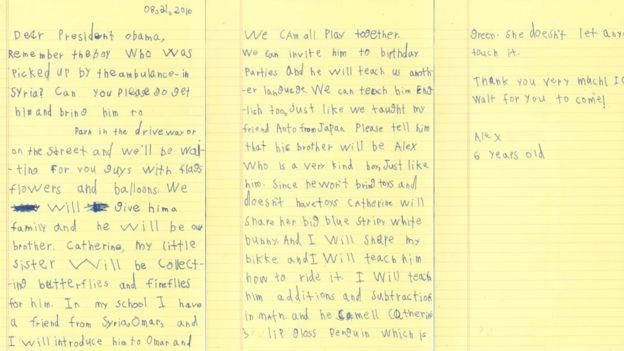 08,21,2016
Dear President obama,
Remember the boy who was
picked up by the ambulance in
Syria? Can you please go get
him and bring him to
Park in the driveway or
on the street and we'll be wai-
ting for you guys with flags
flowers and balloons. We
will give him a
family and he will be our
brother. Catherine, my little
sister will be collect-
ing butterflies and fireflies
for him. In my school I have
a friend from Syria, Omar, and
I will introduce him to Omar and
We can all play together.
We can invite him to birthday
parties and he will teach us anoth-
er language. We can teach him eng-
lish too, Just like we taught my
friend Aoto from Japan Please tell him
that his brother will be Alex
who is a very kind boy, Just like
him. Since he won't bring toys and
doesn't have toys Catherine will
share her big blue stripy white
bunny. And I will share my
bikke and I will teach him
how to ride it. I will teach
him additions and subtraction
in math. and he smell Catherine
lip gloss penguin which is
green. She doesn't let any
touch it.
Thank you very much! I c
wait for you to come!
Alex
6 years old